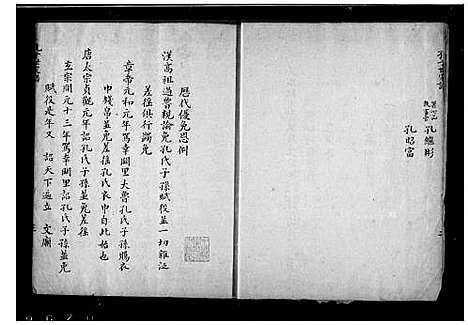 孔繼彬
孔昭富
歷代優免恩例
漢高祖過曹親諭免孔氏子孫賦役並一切雜泛
差徭俱行蠲免
章帝元和元年駕幸闕里大會孔氏子孫賜衣
巾錢帛並免差徭孔氏衣巾自此始也
唐太宗貞觀元年詔孔氏子孫並免差徭
玄宗開元十三年駕幸闕里詔孔氏子孫並免
賦役是年又 詔天下遍立 文廟